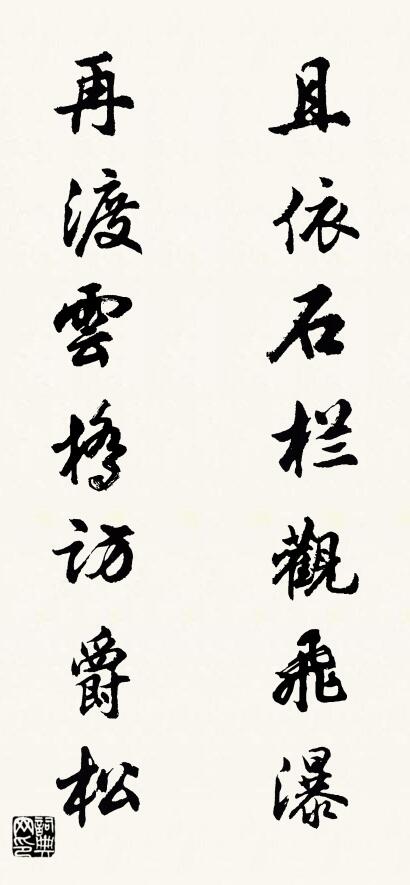 且依石栏觀飛瀑
再渡雲橋访爵松
詞典网印